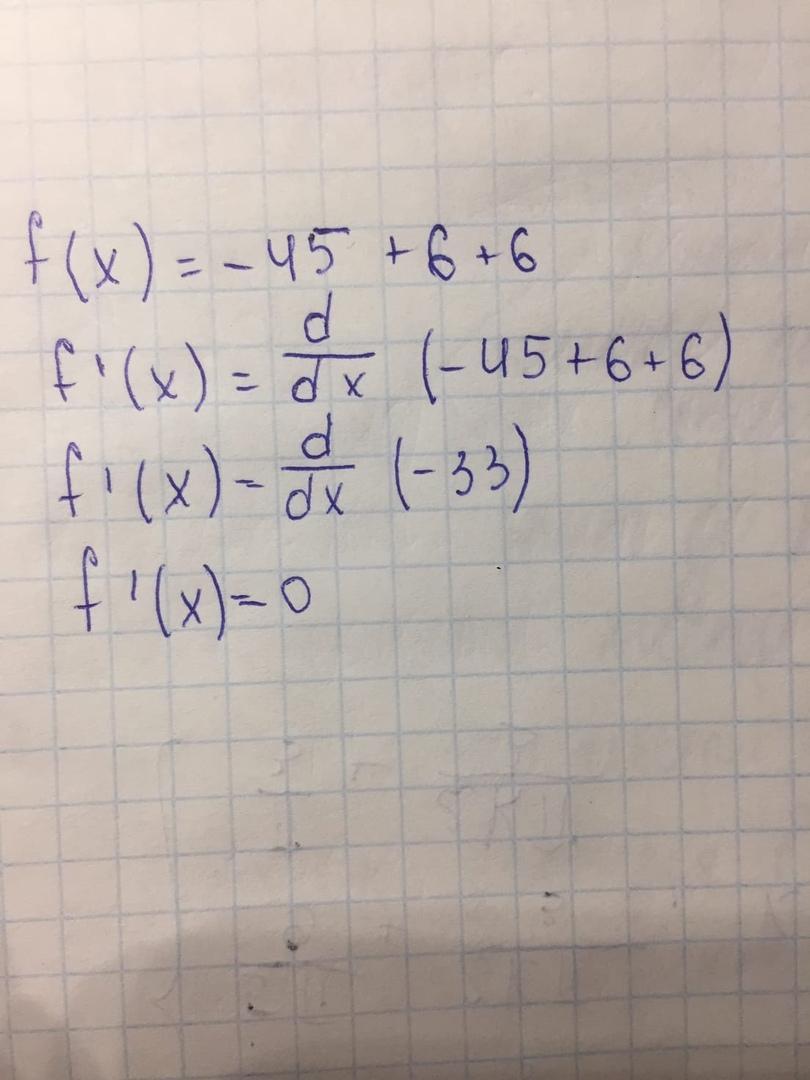 f(x) = -45 + 6 + 6
f'(x) = d/dx (-45 + 6 + 6)
f'(x) = d/dx (-33)
f'(x) = 0